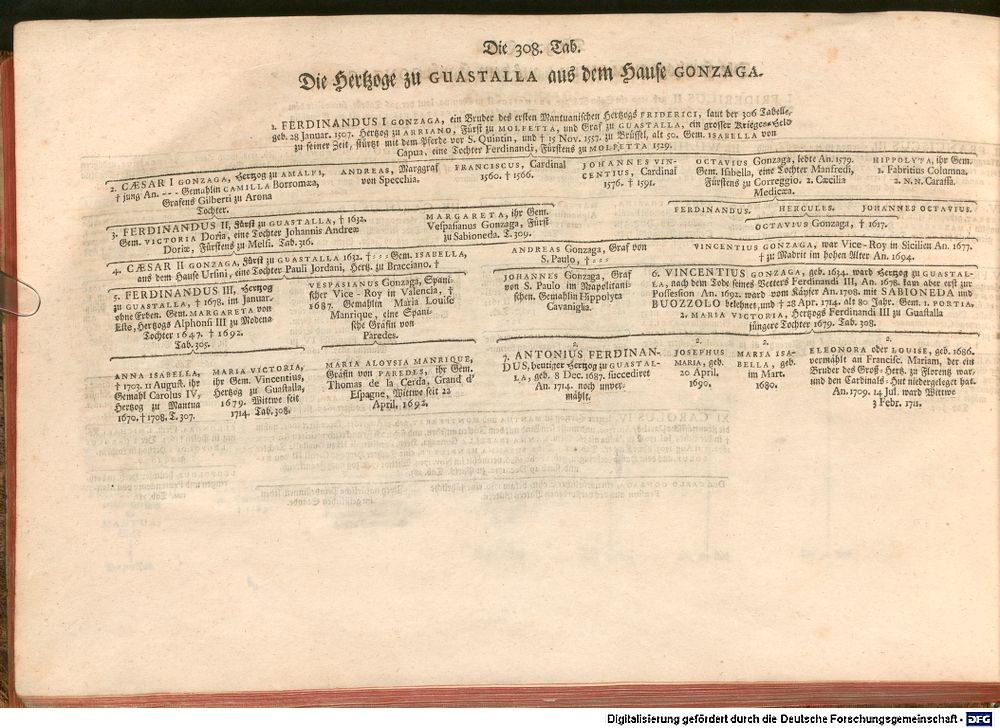 Die 308. Tab.
Die Hertzoge zu GUASTALLA aus dem Hause GONZAGA.
1. FERDINANDUS I GONZAGA, ein Bruder des ersten Mantuanischen Hertzogs FRIDERICI, laut der 306 Tabelle,
geb. 28 Januar. 1507. Hertzog zu ARRIANO, Fürst zu MOLFETTA, und Graf zu GUASTALLA, ein grosser Krieges-Held
zu seiner Zeit, stürtzt mit dem Pferde vor S. Quintin, und † 15 Nov. 1557. zu Brüssel, alt 50. Gem. ISABELLA von
Capua, eine Tochter Ferdinandi, Fürstens zu MOLFETTA 1529.
2. CÆSAR I GONZAGA, Hertzog zu AMALFI,
† jung An. - - - Gemahlin CAMILLA Borromæa,
Grafens Gilberti zu Arona
Tochter.
ANDREAS, Marggraf
von Specchia.
FRANCISCUS, Cardinal
1560. † 1566.
JOHANNES VIN-
CENTIUS, Cardinal
1576. † 1591.
OCTAVIUS Gonzaga, lebte An. 1579.
Gem. Isabella, eine Tochter Manfredi,
Fürstens zu Correggio. 2. Cæcilia
Medicæa.
HIPPOLYTA, ihr Gem.
1. Fabritius Columna.
2. N. N. Caraffa.
3. FERDINANDUS II, Fürst zu GUASTALLA, † 1632.
Gem. VICTORIA Doria, eine Tochter Johannis Andreæ
Doriæ, Fürstens zu Melfi. Tab. 316.
MARGARETA, ihr Gem.
Vespasianus Gonzaga, Fürst
zu Sabioneda. T. 309.
FERDINANDUS.
HERCULES.
JOHANNES OCTAVIUS.
OCTAVIUS Gonzaga, † 1617.
4. CÆSAR II GONZAGA, Fürst zu GUASTALLA 1632. † - - - Gem. ISABELLA,
aus dem Hause Ursini, eine Tochter Pauli Jordani, Hertz. zu Bracciano. †
ANDREAS Gonzaga, Graf von
S. Paulo, † - - -
VINCENTIUS GONZAGA, war Vice-Roy in Sicilien An. 1677.
† zu Madrit im hohen Alter An. 1694.
5. FERDINANDUS III, Hertzog
zu GUASTALLA, † 1678. im Januar.
ohne Erben. Gem. MARGARETA von
Este, Hertzogs Alphonsi III zu Modena
Tochter 1647. † 1692.
Tab. 305.
VESPASIANUS Gonzaga, Spani-
scher Vice-Roy in Valencia, †
1687. Gemahlin Maria Louise
Manrique, eine Spani-
sche Gräfin von
Paredes.
JOHANNES Gonzaga, Graf
von S. Paulo im Neapolitani-
schen. Gemahlin Hippolyta
Cavaniglia.
6. VINCENTIUS GONZAGA, geb. 1634. ward Hertzog zu GUASTAL-
LA, nach dem Tode seines Vetters Ferdinandi III, An. 1678. kam aber erst zur
Possession An. 1692. ward vom Käyser An. 1708. mit SABIONEDA und
BUOZZOLO belehnet, und † 28 Apr. 1714. alt 80 Jahr. Gem. 1. PORTIA.
2. MARIA VICTORIA, Hertzogs Ferdinandi III zu Guastalla
jüngere Tochter 1679. Tab. 308.
ANNA ISABELLA,
† 1703. 11 August. ihr
Gemahl Carolus IV,
Hertzog zu Mantua
1670. † 1708. T. 307.
MARIA VICTORIA,
ihr Gem. Vincentius,
Hertzog zu Guastalla,
1679. Wittwe seit
1714. Tab. 308.
MARIA ALOYSIA MANRIQUE,
Gräfin von PAREDES, ihr Gem.
Thomas de la Cerda, Grand d'
Espagne, Wittwe seit 22
April. 1692.
2.
7. ANTONIUS FERDINAN-
DUS, heutiger Hertzog zu GUASTAL-
LA, geb. 8 Dec. 1687. succediret
An. 1714. noch unver-
mählt.
2.
JOSEPHUS
MARIA, geb.
20 April.
1690.
2.
MARIA ISA-
BELLA, geb.
im Mart.
1680.
2.
ELEONORA oder LOUISE, geb. 1686.
vermählt an Francisc. Mariam, der ein
Bruder des Groß-Hertz. zu Florentz war,
und den Cardinals-Hut niedergeleget hat.
An. 1709. 14 Jul. ward Wittwe
3 Febr. 1711.
Digitalisierung gefördert durch die Deutsche Forschungsgemeinschaft - DFG